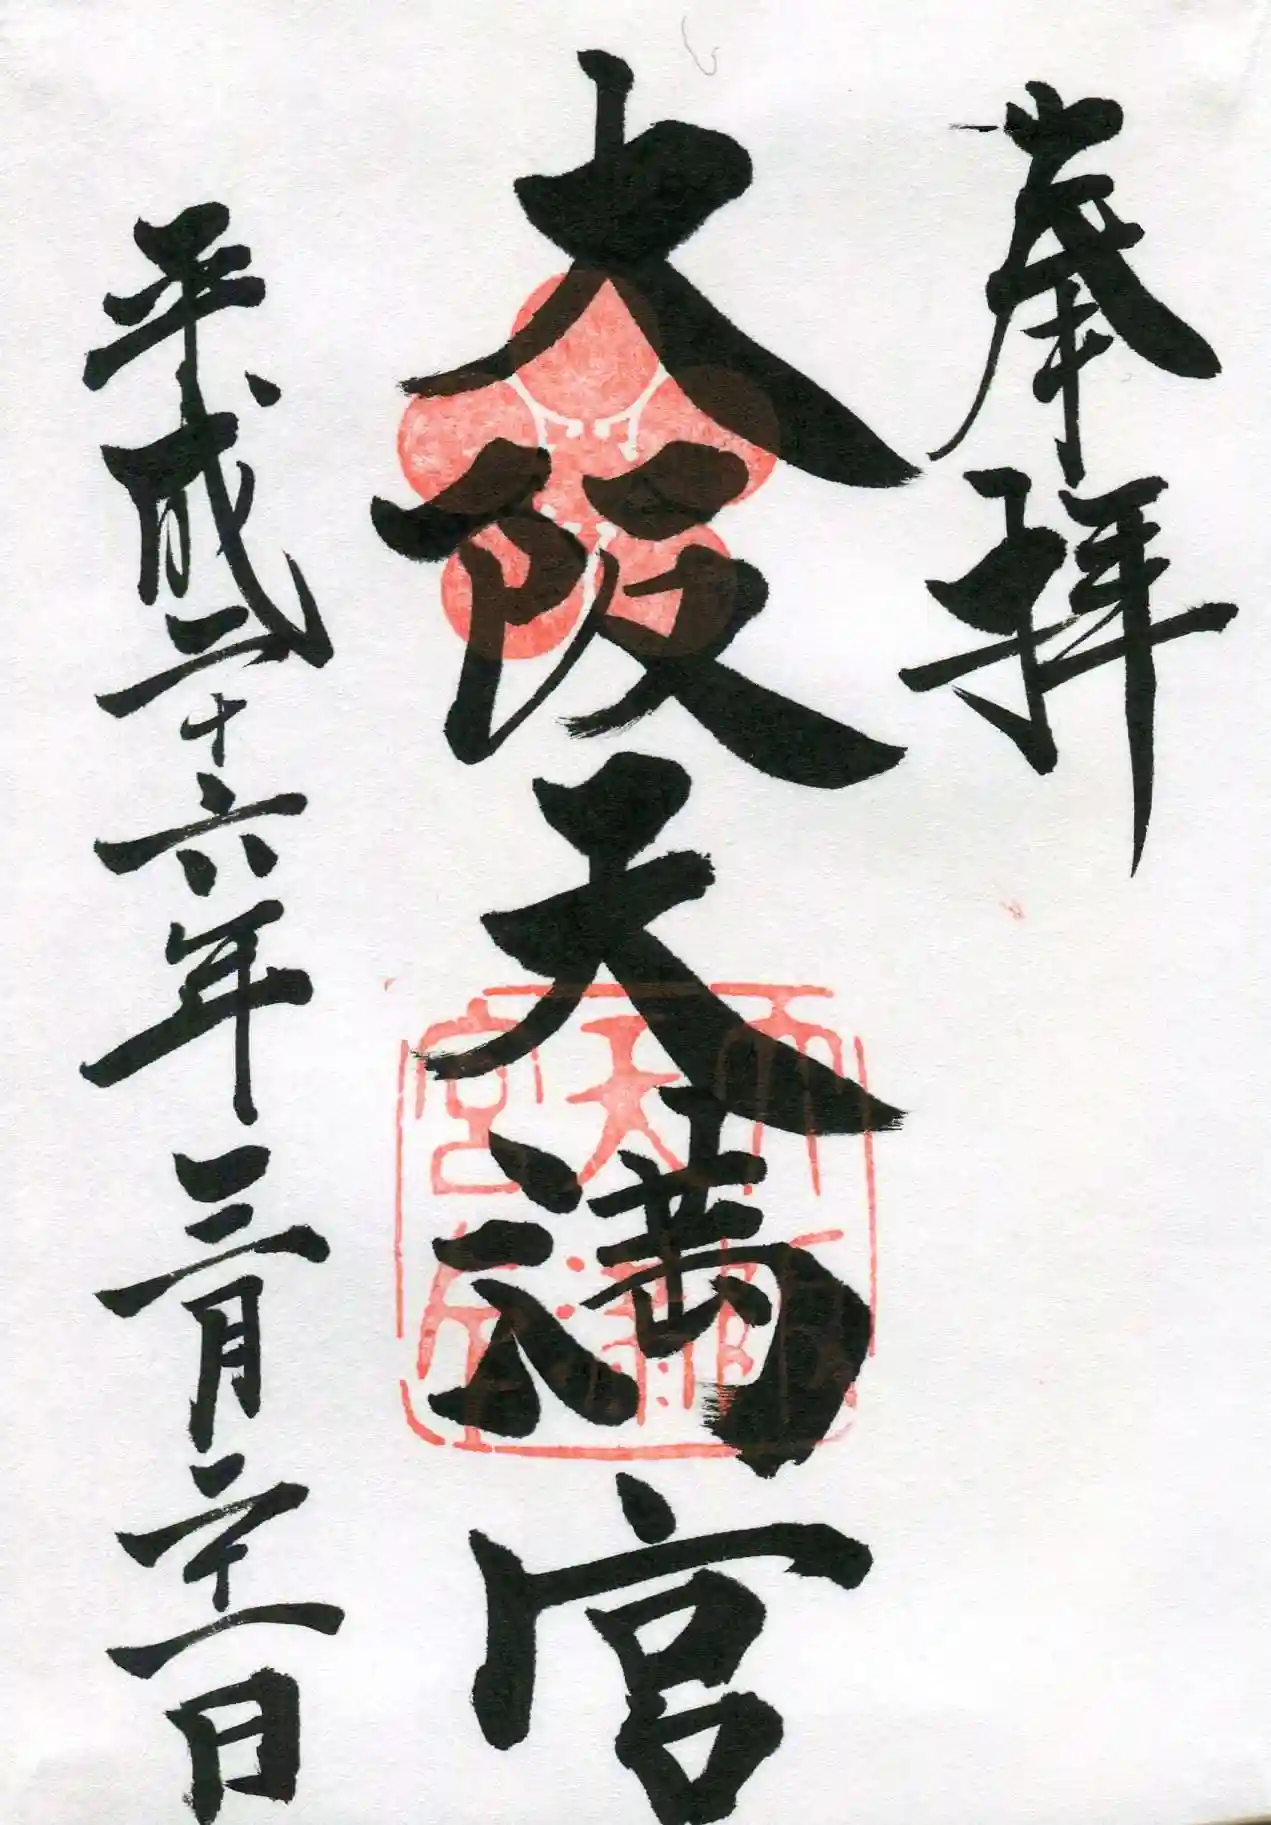 奉拝
大阪天満宮
平成二十六年三月二十一日
大阪
天満
宮